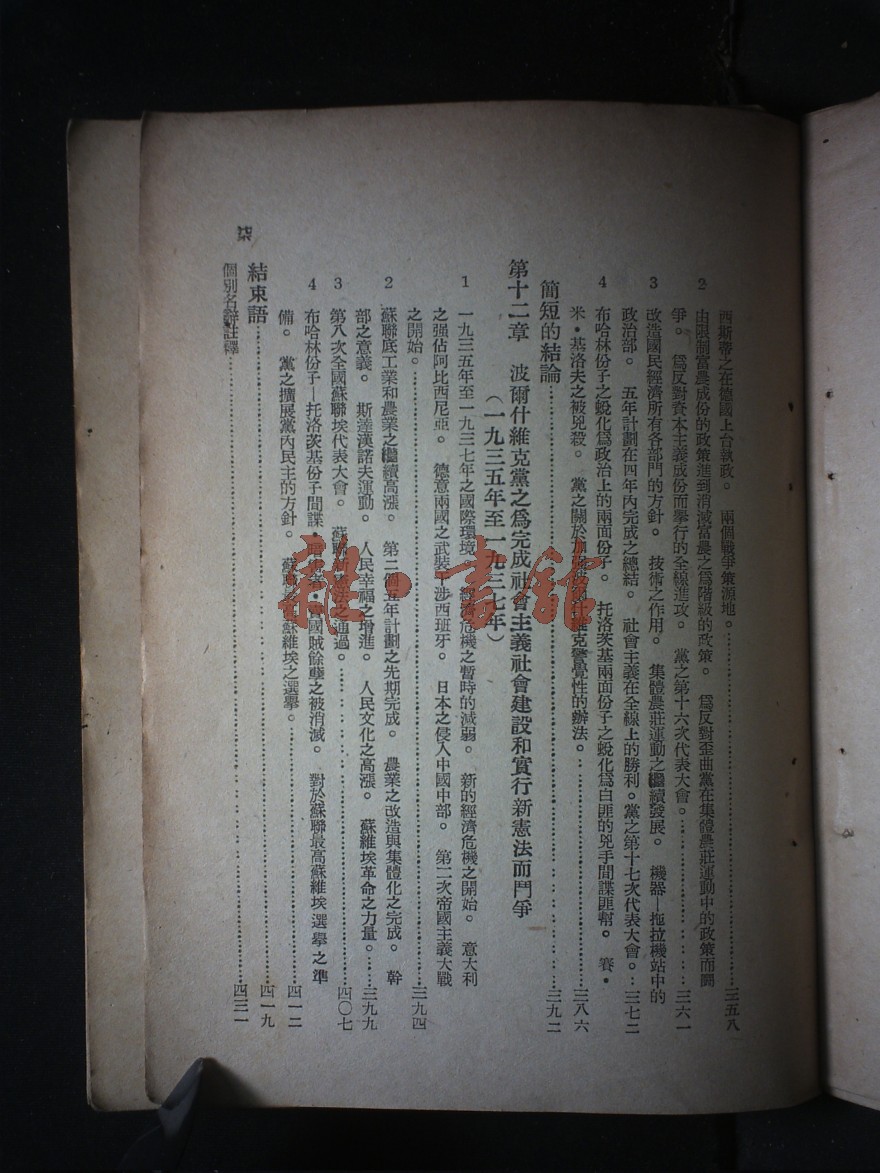 西斯蒂之在德國上台執政。 兩個戰爭策源地。……三五八
2 由限制富農成份的政策進到消滅富農之爲階級的政策。 爲反對歪曲黨在集體農莊運動中的政策而鬬
爭。 爲反對資本主義成份而舉行的全線進攻。 黨之第十六次代表大會。……三六一
3 改造國民經濟所有各部門的方針。 技術之作用。 集體農莊運動之繼續發展。 機器—拖拉機站中的
政治部。 五年計劃在四年內完成之總結。 社會主義在全線上的勝利。黨之第十七次代表大會。…三七二
4 布哈林份子之蛻化爲政治上的兩面份子。 托洛茨基兩面份子之蛻化爲白匪的兇手間諜匪幫。 賽·
米·基洛夫之被兇殺。 黨之關於加強波爾什維克警覺性的辦法。……三八六
簡短的結論……三九二
第十二章 波爾什維克黨之爲完成社會主義社會建設和實行新憲法而鬥爭
(一九三五年至一九三七年)
1 一九三五年至一九三七年之國際環境。 經濟危機之暫時的減弱。 新的經濟危機之開始。 意大利
之强佔阿比西尼亞。 德意兩國之武裝干涉西班牙。 日本之侵入中國中部。 第二次帝國主義大戰
之開始。……三九四
2 蘇聯底工業和農業之繼續高漲。 第二個五年計劃之先期完成。 農業之改造與集體化之完成。 幹
部之意義。 斯達漢諾夫運動。 人民幸福之增進。 人民文化之高漲。 蘇維埃革命之力量。……三九九
3 第八次全國蘇聯埃代表大會。 蘇聯新憲法之通過。……四〇七
4 布哈林份子—托洛茨基份子間諜·暗害者·賣國賊餘孽之被消滅。 對於蘇聯最高蘇維埃選舉之準
備。 黨之擴展黨內民主的方針。 蘇聯最高蘇維埃之選舉。……四一二
結束語……四一九
個別名辭註釋……四三一
柒
雜·書館